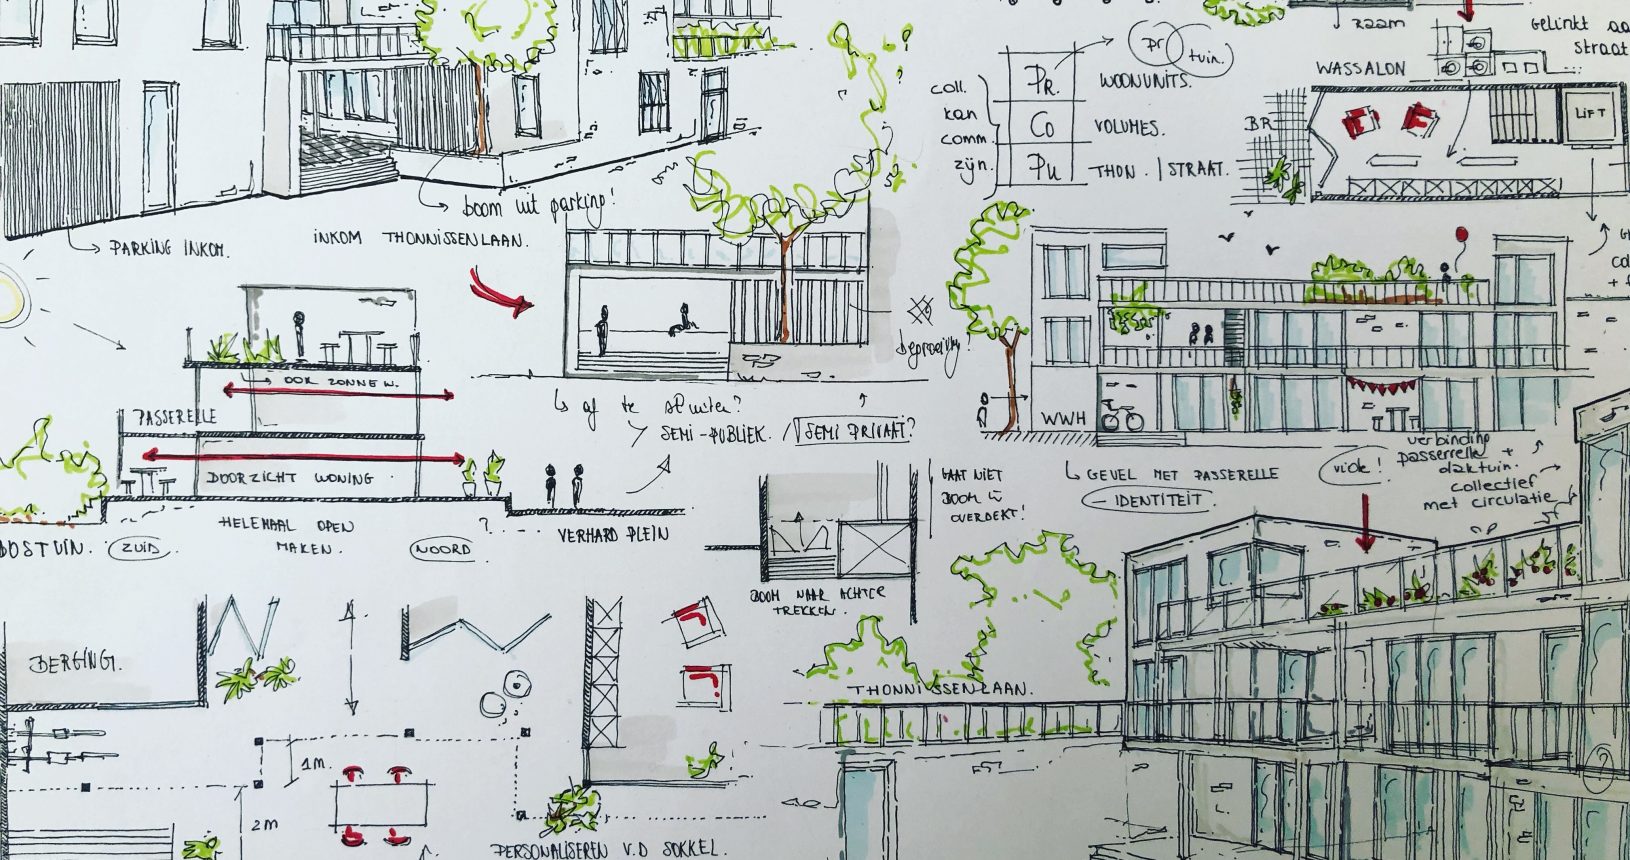 boom uit parking!
PARKING INKOM.
INKOM THONNISSENLAAN.
coll.
kan
comm.
zijn.
PR.
pr
tuin.
WOONUNITS.
CO
VOLUMES.
PU
THON. / STRAAT.
RAAM
gelinkt
straat
WASSALON
BR
LIFT
OOK ZONNEW.
PASSERELLE
DOORZICHT WONING
HELEMAAL OPEN
MAKEN.
?
ZUID
NOORD
VERHARD PLEIN
af te sluiten?
SEMI-PUBLIEK. / SEMI PRIVAAT?
begroeiing?
WWH
GEVEL MET PASSERELLE
- IDENTITEIT.
vide!
verbinding
passerelle +
daktuin.
collectief
met circulatie
GAAT NIET
BOOM IS
OVERDEKT!
BOOM NAAR ACHTER
TREKKEN.
THONNISSENLAAN.
BERGING.
1m.
2m
PERSONALISEREN V.D SOKKEL.
?